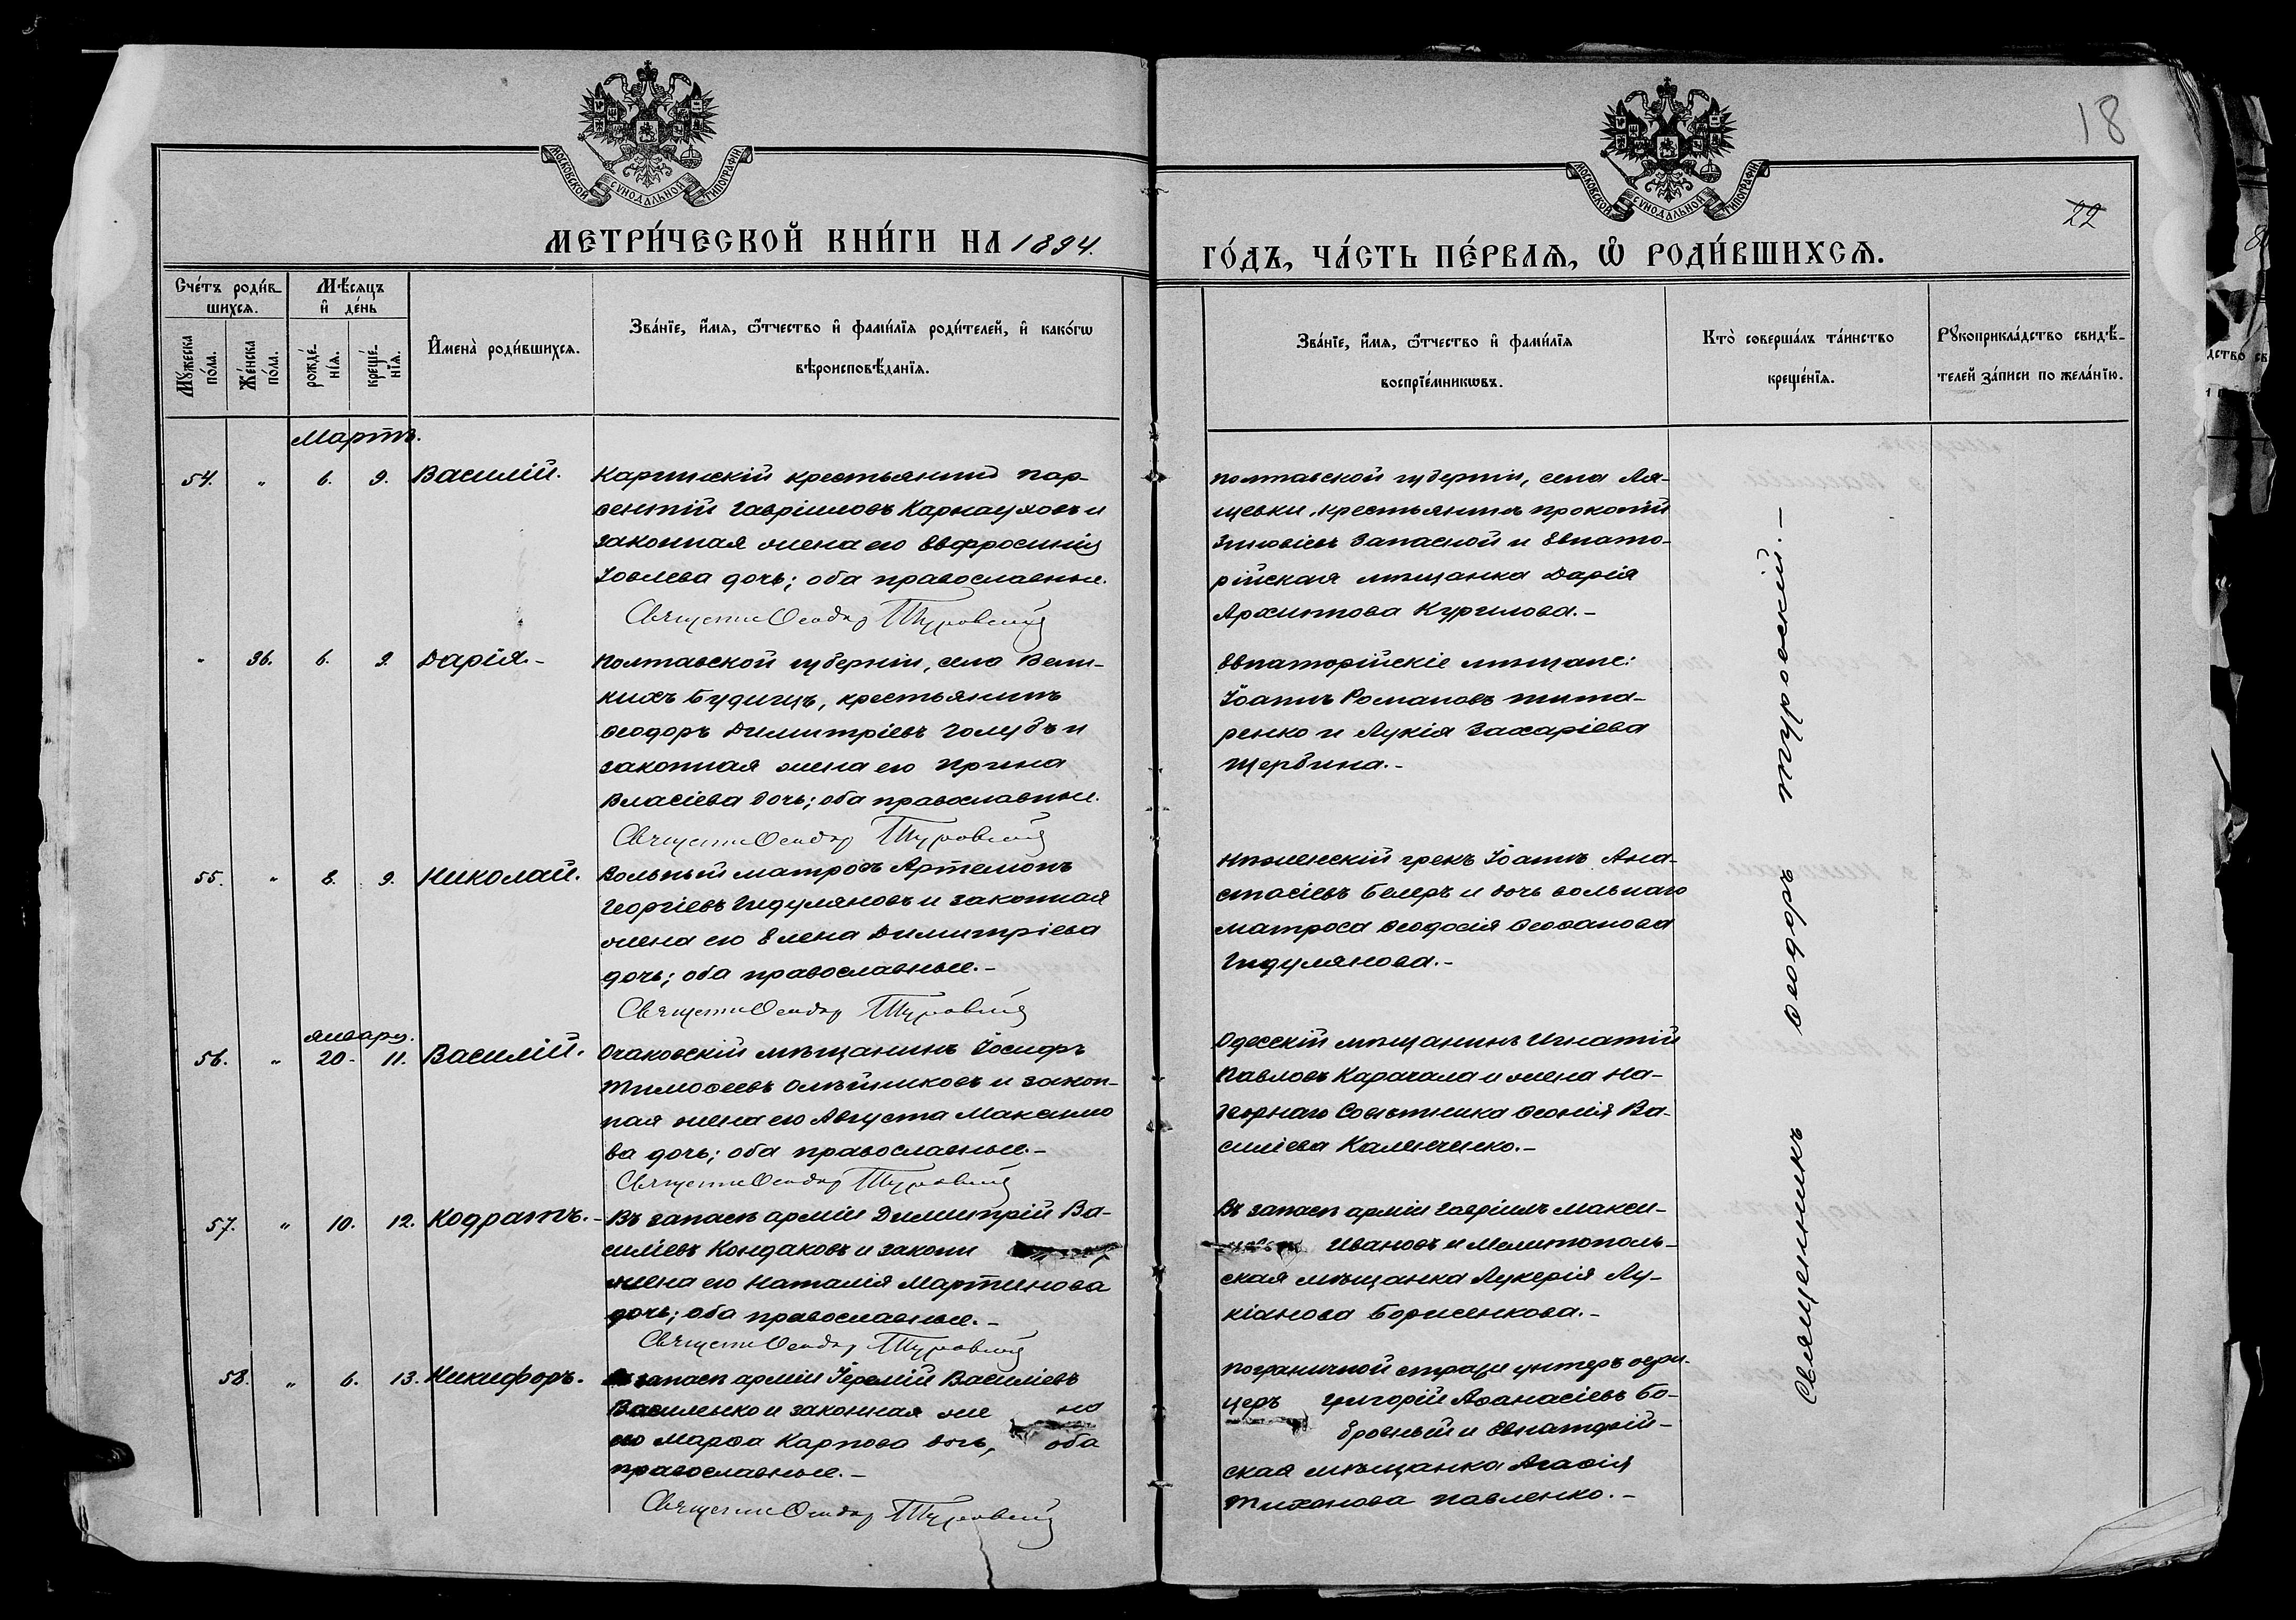 МОСКОВСКОЙ СУНОДАЛЬНОЙ ТИПОГРАФІИ
МОСКОВСКОЙ СУНОДАЛЬНОЙ ТИПОГРАФІИ
18
22
МЕТРИ́ЧЕСКОЙ КНИ́ГИ НА 1894.
ГО́ДЪ, ЧА́СТЬ ПЕ́РВАѦ, Ѡ҆ РОДИ́ВШИХСѦ.
Сче́тъ роди́в-
шихсѧ.
Мѣ́сяцъ
и҆ де́нь
Мꙋ́жеска по́ла.
Же́нска по́ла.
рожде́-нїѧ.
креще́-нїѧ.
И҆мена̀ роди́вшихсѧ.
Зва́нїе, и҆́мѧ, ѻ҆́тчество и҆ фами́лїѧ роди́телей, и҆ како́гѡ
вѣроисповѣ́данїѧ.
Зва́нїе, и҆́мѧ, ѻ҆́тчество и҆ фами́лїѧ
воспрїе́мникѡвъ.
Кто̀ соверша́лъ та́инство
креще́нїѧ.
Рꙋкоприкла́дство свидѣ́-
телей за́писи по жела́нїю.
Мартъ.
54. „ 6. 9. Василій.
Карпискій крестьянинъ Пар-
ѳентій Гавріиловъ Карнауховъ и
законная жена его Евфросинія
Іовлева дочь; оба православные.
Священн Ѳеодор Туровскій
Полтавской губерніи, села Ля-
щевки, крестьянинъ Прокопій
Зиновіевъ Запасной и Евпато-
рійская мѣщанка Дарія
Архиппова Курилова.-
„ 36. 6. 9. Дарія.-
Полтавской губерніи, села Вели-
кихъ Будищъ, крестьянинъ
Ѳеодоръ Димитріевъ Голубъ и
законная жена его Ирина
Власіева дочь; оба православные.
Священн Ѳеодор Туровскій
Евпаторійскіе мѣщане:
Іоаннъ Романовъ Тита-
ренко и Лукія Захаріева
Щербина.-
55. „ 8. 9. Николай.
Вольный матросъ Артемонъ
Георгіевъ Гидуляновъ и законная
жена его Елена Димитріева
дочь; оба православные.-
Священн Ѳеодор Туровскій
Нѣженскій грекъ Іоаннъ Ана-
стасіевъ Белеръ и дочь вольнаго
матроса Ѳеодосія Ѳеофанова
Гидулянова.-
января.
56. „ 20- 11. Василій.
Очаковскій мѣщанинъ Іосифъ
Тимоѳеевъ Олѣйниковъ и закон-
ная жена его Августа Максимо
ва дочь; оба православные.-
Священн Ѳеодор Туровскій
Одесскій мѣщанинъ Игнатій
Павловъ Карачала и жена На-
дворнаго Совѣтника Ѳеонія Ва-
силіева Калинченко.-
57. „ 10. 12. Кодратъ.-
Въ запасѣ арміи Димитрій Ва-
силіевъ Кондаковъ и законн
жена его Наталія Мартинова
дочь; оба православные.-
Священн Ѳеодор Туровскій
Въ запасѣ арміи Гавріилъ Макси-
Ивановъ и Мелитополь-
ская мѣщанка Лукерія Лу-
кіанова Борисенкова.-
58. „ 6. 13. Никифоръ.
Въ запасѣ арміи Іеремій Василіевъ
Василенко и законная же на
его Марѳа Карпова дочь, оба
православные.-
Священн Ѳеодор Туровскій
Пограничной стражи унтеръ офи-
церъ Григорій Аѳанасіевъ Бо-
бровный и Евпаторій-
ская мѣщанка Агаѳія
Тихонова Павленко.-
Священникъ Ѳеодоръ Туровскій.-